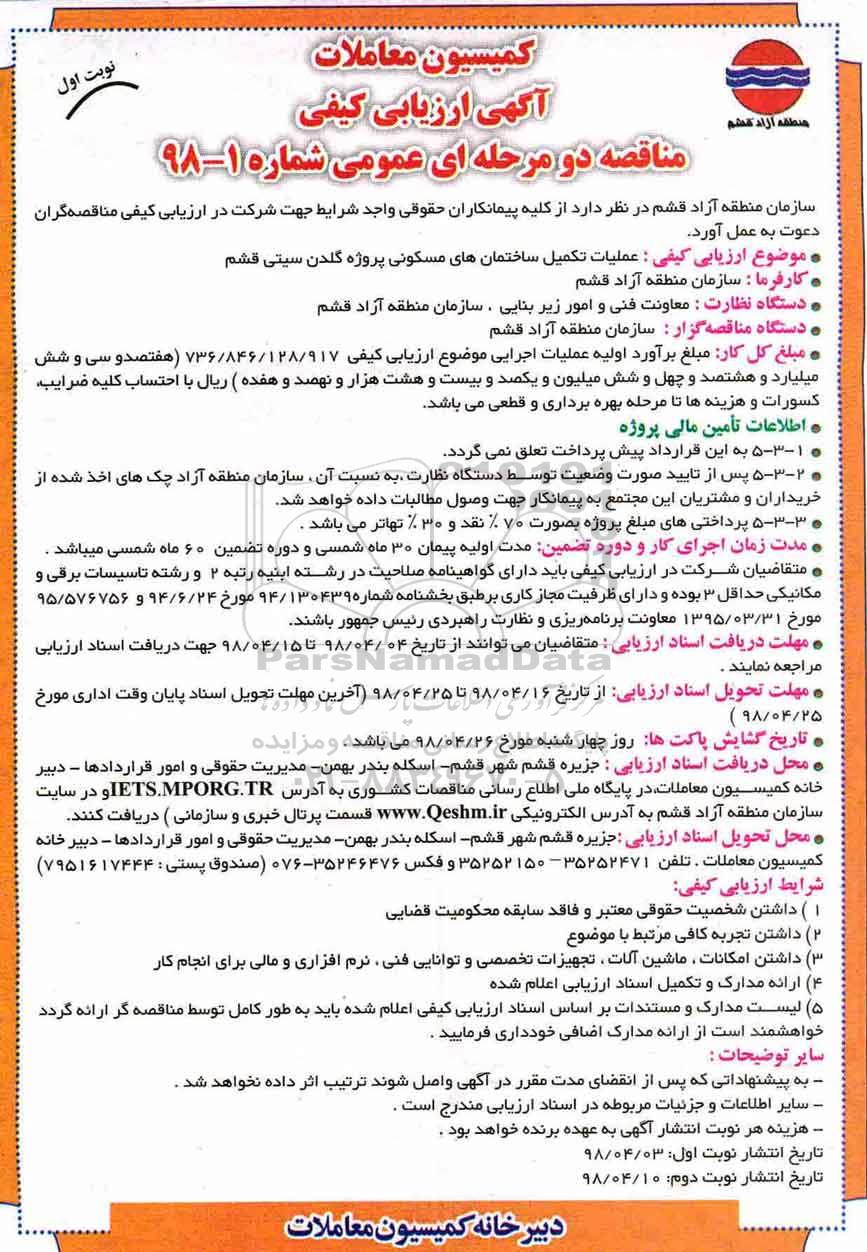 کمیسیون معاملات
نوبت اول
آگهی ارزیابی کیفی
منطقه آزاد قشم
مناقصه دو مرحله ای عمومی شماره ۱-۹۸
سازمان منطقه آزاد قشم در نظر دارد از کلیه پیمانکاران حقوقی واجد شرایط جهت شرکت در ارزیابی کیفی مناقصه‌گران
دعوت به عمل آورد.
موضوع ارزیابی کیفی : عملیات تکمیل ساختمان های مسکونی پروژه گلدن سیتی قشم
کارفرما : سازمان منطقه آزاد قشم
دستگاه نظارت : معاونت فنی و امور زیر بنایی ، سازمان منطقه آزاد قشم
دستگاه مناقصه‌گزار : سازمان منطقه آزاد قشم
مبلغ کل کار: مبلغ برآورد اولیه عملیات اجرایی موضوع ارزیابی کیفی ۷۳۶/۸۴۶/۱۲۸/۹۱۷ (هفتصدو سی و شش
میلیارد و هشتصد و چهل و شش میلیون و یکصد و بیست و هشت هزار و نهصد و هفده ) ریال با احتساب کلیه ضرایب،
کسورات و هزینه ها تا مرحله بهره برداری و قطعی می باشد.
اطلاعات تأمین مالی پروژه
۵-۳-۱ به این قرارداد پیش پرداخت تعلق نمی گردد.
۵-۳-۲ پس از تایید صورت وضعیت توسط دستگاه نظارت ،به نسبت آن ، سازمان منطقه آزاد چک های اخذ شده از
خریداران و مشتریان این مجتمع به پیمانکار جهت وصول مطالبات داده خواهد شد.
۵-۳-۳ پرداختی های مبلغ پروژه بصورت ۷۰ ٪ نقد و ۳۰ ٪ تهاتر می باشد .
مدت زمان اجرای کار و دوره تضمین: مدت اولیه پیمان ۳۰ ماه شمسی و دوره تضمین ۶۰ ماه شمسی میباشد .
متقاضیان شرکت در ارزیابی کیفی باید دارای گواهینامه صلاحیت در رشته ابنیه رتبه ۲ و رشته تاسیسات برقی و
مکانیکی حداقل ۳ بوده و دارای ظرفیت مجاز کاری برطبق بخشنامه شماره ۹۴/۱۳۰۴۳۹ مورخ ۹۴/۶/۲۴ و ۹۵/۵۷۶۷۵۶
مورخ ۱۳۹۵/۰۳/۳۱ معاونت برنامه‌ریزی و نظارت راهبردی رئیس جمهور باشند.
مهلت دریافت اسناد ارزیابی : متقاضیان می توانند از تاریخ ۹۸/۰۴/۰۴ تا ۹۸/۰۴/۱۵ جهت دریافت اسناد ارزیابی
مراجعه نمایند .
ParsNamadData
مهلت تحویل اسناد ارزیابی: از تاریخ ۹۸/۰۴/۱۶ تا ۹۸/۰۴/۲۵ (آخرین مهلت تحویل اسناد پایان وقت اداری مورخ
۹۸/۰۴/۲۵ )
تاریخ گشایش پاکت ها: روز چهار شنبه مورخ ۹۸/۰۴/۲۶ می باشد .
پایگاه اطلاع رسانی مناقصه و مزایده
محل دریافت اسناد ارزیابی : جزیره قشم شهر قشم- اسکله بندر بهمن- مدیریت حقوقی و امور قراردادها - دبیر
۰۲۱-۸۸۳۴۹۶۷۰-۵
خانه کمیسیون معاملات،در پایگاه ملی اطلاع رسانی مناقصات کشوری به آدرس IETS.MPORG.TR و در سایت
سازمان منطقه آزاد قشم به آدرس الکترونیکی www.Qeshm.ir قسمت پرتال خبری و سازمانی ) دریافت کنند.
محل تحویل اسناد ارزیابی :جزیره قشم شهر قشم- اسکله بندر بهمن- مدیریت حقوقی و امور قراردادها - دبیر خانه
کمیسیون معاملات . تلفن ۳۵۲۵۲۴۷۱ – ۳۵۲۵۲۱۵۰ و فکس ۳۵۲۴۶۴۷۶-۰۷۶ (صندوق پستی : ۷۹۵۱۶۱۷۴۴۴)
شرایط ارزیابی کیفی:
۱ ) داشتن شخصیت حقوقی معتبر و فاقد سابقه محکومیت قضایی
۲) داشتن تجربه کافی مرتبط با موضوع
۳) داشتن امکانات ، ماشین آلات ، تجهیزات تخصصی و توانایی فنی ، نرم افزاری و مالی برای انجام کار
۴) ارائه مدارک و تکمیل اسناد ارزیابی اعلام شده
۵) لیست مدارک و مستندات بر اساس اسناد ارزیابی کیفی اعلام شده باید به طور کامل توسط مناقصه گر ارائه گردد
خواهشمند است از ارائه مدارک اضافی خودداری فرمایید .
سایر توضیحات :
- به پیشنهاداتی که پس از انقضای مدت مقرر در آگهی واصل شوند ترتیب اثر داده نخواهد شد .
- سایر اطلاعات و جزئیات مربوطه در اسناد ارزیابی مندرج است .
- هزینه هر نوبت انتشار آگهی به عهده برنده خواهد بود .
تاریخ انتشار نوبت اول: ۹۸/۰۴/۰۳
تاریخ انتشار نوبت دوم: ۹۸/۰۴/۱۰
دبیر خانه کمیسیون معاملات